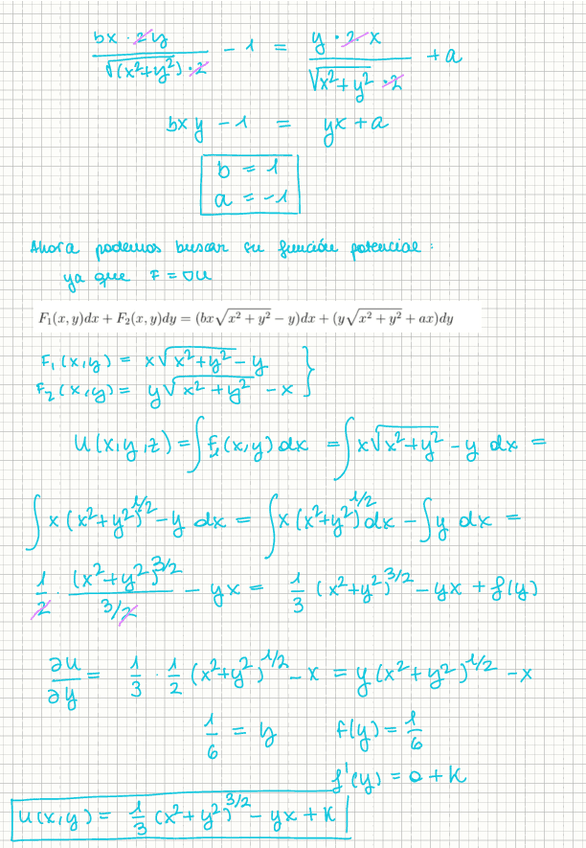 bx · 2y / √(x²+y²) · 2 − 1 = y · 2x / √x²+y² · 2 + a
bxy − 1 = yx + a
b = 1
a = −1
Ahora podemos buscar su función potencial :
ya que F = ∇u
F₁(x, y)dx + F₂(x, y)dy = (bx√x² + y² − y)dx + (y√x² + y² + ax)dy
F₁(x,y) = x√x²+y² − y
F₂(x,y) = y√x²+y² − x }
u(x,y,z) = ∫F₁(x,y) dx = ∫x√x²+y² − y dx =
∫x(x²+y²)^1/2 − y dx = ∫x(x²+y²)^1/2 dx − ∫y dx =
1/2 · (x²+y²)^3/2 / 3/2 − yx = 1/3 (x²+y²)^3/2 − yx + f(y)
∂u/∂y = 1/3 · 1/2 (x²+y²)^1/2 − x = y(x²+y²)^1/2 − x
1/6 = y f(y) = 1/6
f'(y) = 0 + K
u(x,y) = 1/3 (x²+y²)^3/2 − yx + K